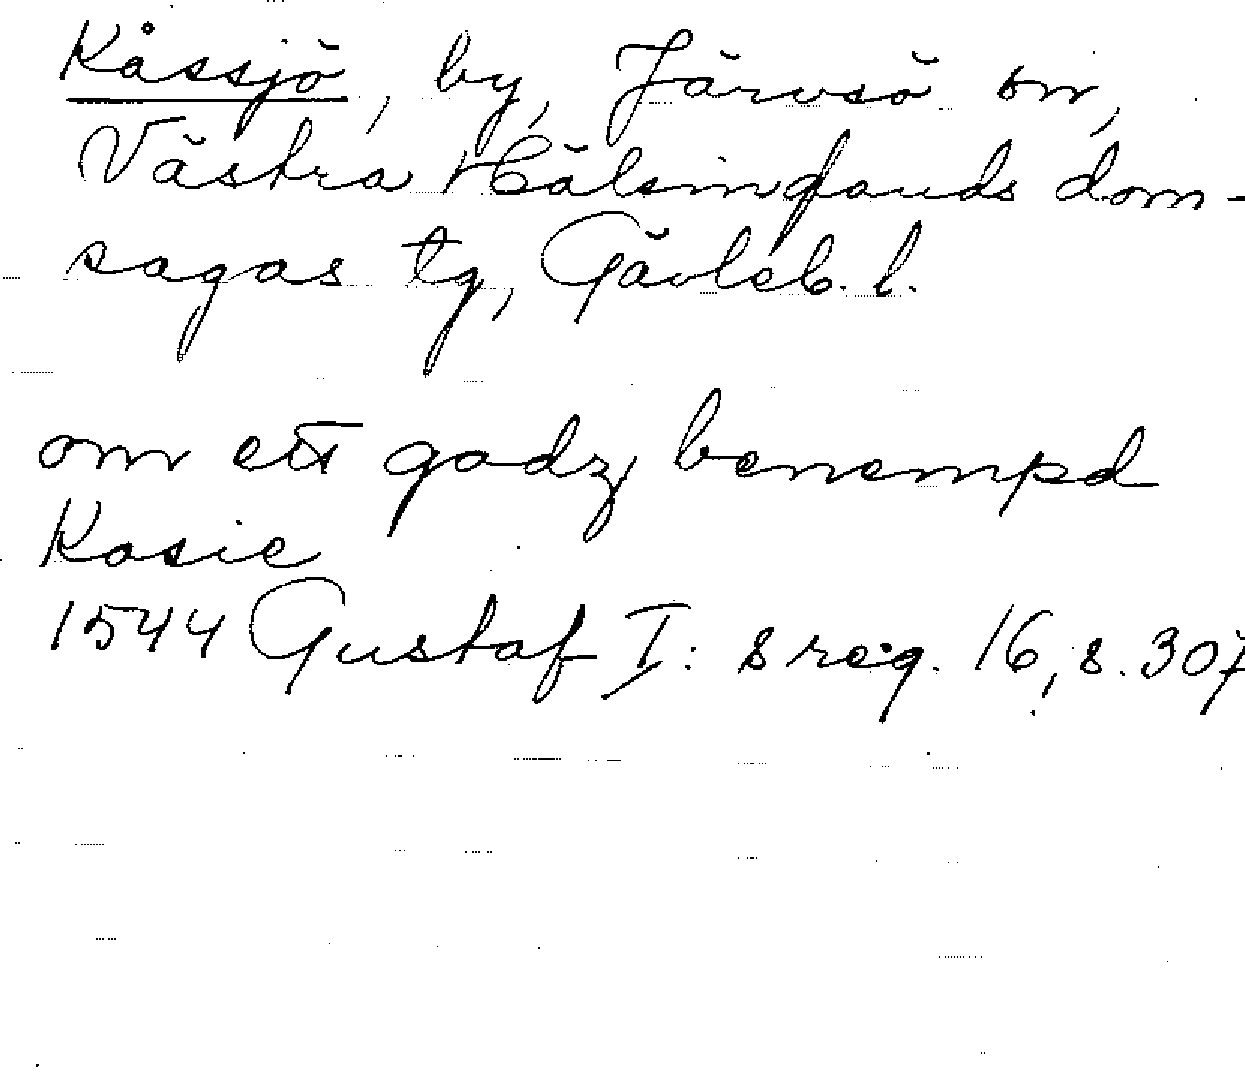 Kåssjö, by, Järvsö sn,
Västra Hälsinglands dom-
sagas tg, Gävleb. l.
om ett godz benempd
Kosie
1544 Gustaf I:s reg. 16, s. 307